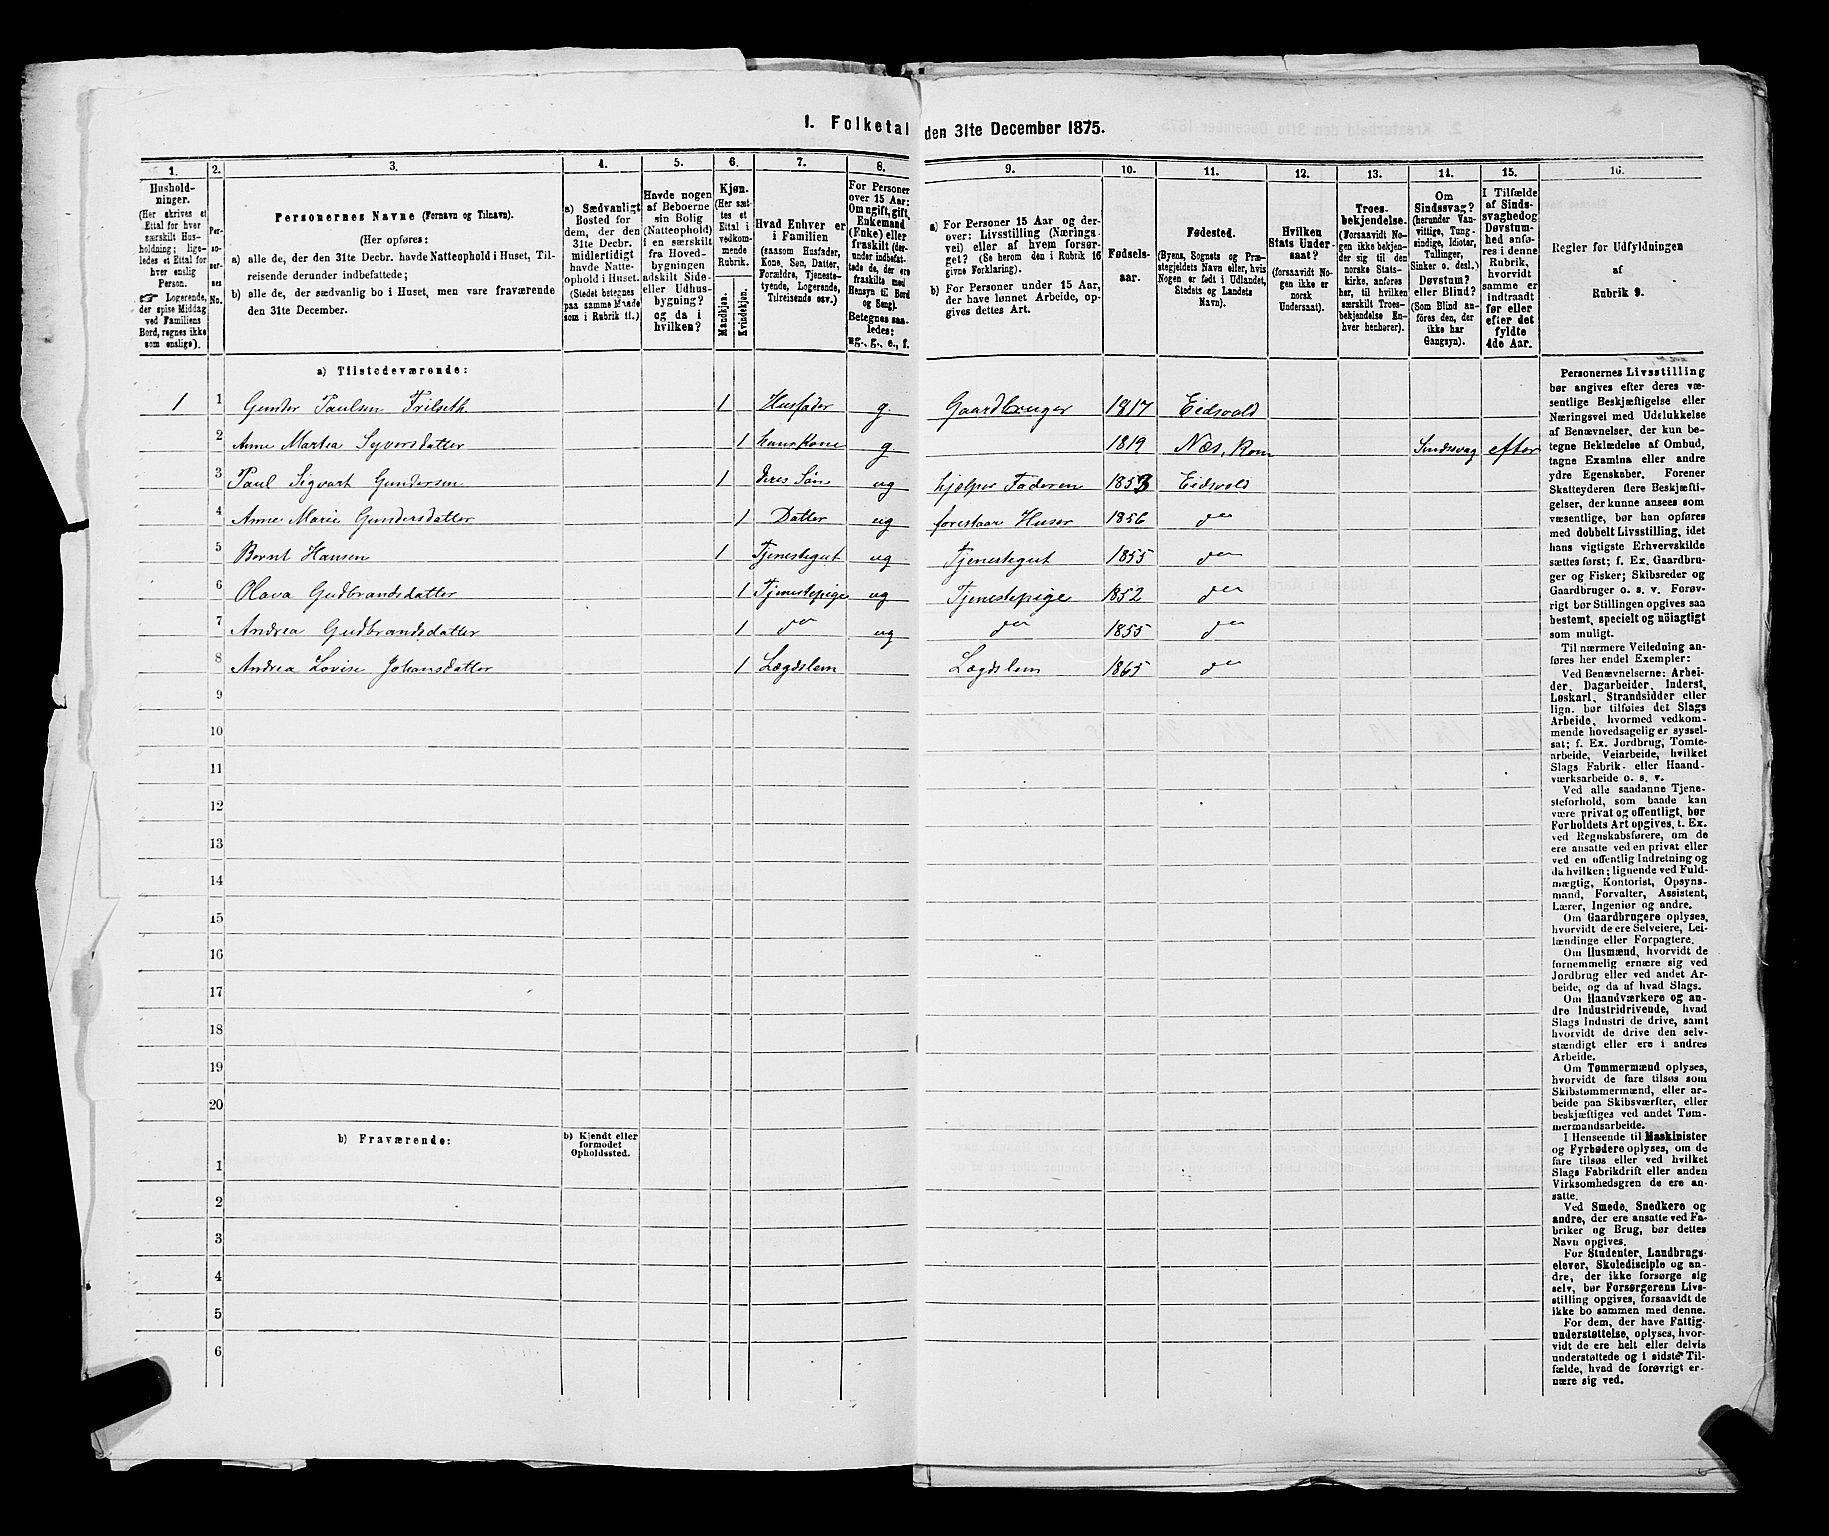 1. Folketal den 31te December 1875.
1. 2. 3. 4. 5. 6. 7. 8. 9. 10. 11. 12. 13. 14. 15. 16.
Hushold-
ninger.
(Her skrives et
Ettal for hver
særskilt Hus-
holdning; lige-
ledes et Ettal for
hver enslig
Person.
☞ Logerende,
der spise Middag
ved Familiens
Bord, regnes ikke
som enslige).
Per-
so-
ner-
nes
No.
Personernes Navne (Fornavn og Tilnavn).
(Her opføres:
a) alle de, der den 31te Decbr. havde Natteophold i Huset, Til-
reisende derunder indbefattede;
b) alle de, der sædvanlig bo i Huset, men vare fraværende
den 31te December.
a) Sædvanligt
Bosted for
dem, der den
31te Decbr.
midlertidigt
havde Natte-
ophold i Huset.
(Stedet betegnes
paa samme Maade
som i Rubrik 11.)
Havde nogen
af Beboerne
sin Bolig
(Natteophold)
i en særskilt
fra Hoved-
bygningen
adskilt Side-
eller Udhus-
bygning?
og da i
hvilken?
Kjøn.
(Her sæt-
tes et
Ettal i
vedkom-
mende
Rubrik.
Mandkjøn.
Kvindekjøn.
Hvad Enhver er
i Familien
(saasom Husfader,
Kone, Søn, Datter,
Forældre, Tjeneste-
tyende, Logerende,
Tilreisende osv.)
For Personer
over 15 Aar:
Om ugift, gift,
Enkemand
(Enke) eller
fraskilt (der-
under indbefat-
tede de, der ere
fraskilte med
Hensyn til Bord
og Seng).
Betegnes saa-
ledes:
ug., g., e., f.
a) For Personer 15 Aar og der-
over: Livsstilling (Nærings-
vei) eller af hvem forsør-
get? (Se herom den i Rubrik 16
givne Forklaring).
b) For Personer under 15 Aar,
der have lønnet Arbeide, op-
gives dettes Art.
Fødsels-
aar.
Fødested.
(Byens, Sognets og Præ-
stegjeldets Navn eller, hvis
Nogen er født i Udlandet,
Stedets og Landets
Navn).
Hvilken
Stats Under-
saat?
(forsaavidt No-
gen ikke er
norsk
Undersaat).
Troes-
bekjendelse.
(Forsaavidt No-
gen ikke bekjen-
der sig til den
norske Stats-
kirke, anføres
her, til hvilken
særskilt Troes-
bekjendelse En-
hver henhører).
Om
Sindssvag?
(herunder Van-
vittige, Tung-
sindige, Idioter,
Tullinger,
Sinker o. desl.)
Døvstum?
eller Blind?
(Som Blind an-
føres den, der
ikke har
Gangsyn).
I Tilfælde
af Sinds-
svaghed og
Døvstum-
hed anfø-
res i denne
Rubrik,
hvorvidt
samme er
indtraadt
før eller
efter det
fyldte
4de Aar.
Regler for Udfyldningen
af
Rubrik 9.
a) Tilstedeværende:
1 1 Gunder Paulsen Trilseth 1 Husfader g. Gaardbruger 1817 Eidsvold
2 Anne Martea Syversdatter 1 hans Kone g. 1819 Næs, Rom Sindssvag efter
3 Paul Sigvart Gundersen 1 deres Søn ug hjælper Faderen 1853 Eidsvold
4 Anne Marie Gundersdatter 1 Datter ug forestaar Huset 1856 do
5 Bernt Hansen 1 Tjenestegut ug Tjenestegut 1855 do
6 Olava Gudbrandsdatter 1 Tjenestepige ug Tjenestepige 1852 do
7 Andrea Gudbrandsdatter 1 do ug do 1855 do
8 Andrea Lovise Johansdatter 1 Lægdslem Lægdslem 1865 do
9
10
11
12
13
14
15
16
17
18
19
20
b) Fraværende:
b) Kjendt eller
formodet
Opholdssted.
1
2
3
4
5
6
Personernes Livsstilling
bør angives efter deres væ-
sentlige Beskjæftigelse eller
Næringsvei med Udelukkelse
af Benævnelser, der kun be-
tegne Beklædelse af Ombud,
tagne Examina eller andre
ydre Egenskaber. Forener
Skatteyderen flere Beskjæfti-
gelser, der kunne ansees som
væsentlige, bør han opføres
med dobbelt Livsstilling, idet
hans vigtigste Erhvervskilde
sættes først; f. Ex. Gaardbru-
ger og Fisker; Skibsreder og
Gaardbruger o. s. v. Forøv-
rigt bør Stillingen opgives saa
bestemt, specielt og nöiagtigt
som muligt.
Til nærmere Veiledning an-
føres her endel Exempler:
Ved Benævnelserne: Arbei-
der, Dagarbeider, Inderst,
Løskarl, Strandsidder eller
lign. bør tilføies det Slags
Arbeide, hvormed vedkom-
mende hovedsagelig er syssel-
sat; f. Ex. Jordbrug, Tomte-
arbeide, Veiarbeide, hvilket
Slags Fabrik- eller Haand-
værksarbeide o. s. v.
Ved alle saadanne Tjene-
steforhold, som baade kan
være privat og offentligt, bør
Forholdets Art opgives, t. Ex.
ved Regnskabsførere, om de
ere ansatte ved en privat eller
ved en offentlig Indretning og
da hvilken; lignende ved Fuld-
mægtig, Kontorist, Opsyns-
mand, Forvalter, Assistent,
Lærer, Ingeniør og andre.
Om Gaardbrugere oplyses,
hvorvidt de ere Selveiere, Lei-
lændinge eller Forpagtere.
Om Husmænd, hvorvidt de
fornemmelig ernære sig ved
Jordbrug eller ved andet Ar-
beide, og da af hvad Slags.
Om Haandværkere og an-
dre Industridrivende, hvad
Slags Industri de drive, samt
hvorvidt de drive den selv-
stændigt eller ere i andres
Arbeide.
Om Tømmermænd oplyses,
hvorvidt de fare tilsøs som
Skibstømmermænd, eller ar-
beide paa Skibsværfter, eller
beskjæftiges ved andet Tøm-
mermandsarbeide.
I Henseende til Maskinister
og Fyrbødere oplyses, om de
fare tilsøs eller ved hvilket
Slags Fabrikdrift eller anden
Virksomhedsgren de ere an-
satte.
Ved Smede, Snedkere og
andre, der ere ansatte ved Fa-
briker og Brug, bør dettes
Navn opgives.
For Studenter, Landbrugs-
elever, Skoledisciple og an-
dre, der ikke forsørge sig
selv, bør Forsørgerens Livs-
stilling opgives, forsaavidt de
ikke bo sammen med denne.
For dem, der have Fattig-
understøttelse, oplyses, hvor-
vidt de ere helt eller delvis
understøttede og i sidste Til-
fælde, hvad de forøvrigt er-
nære sig ved.